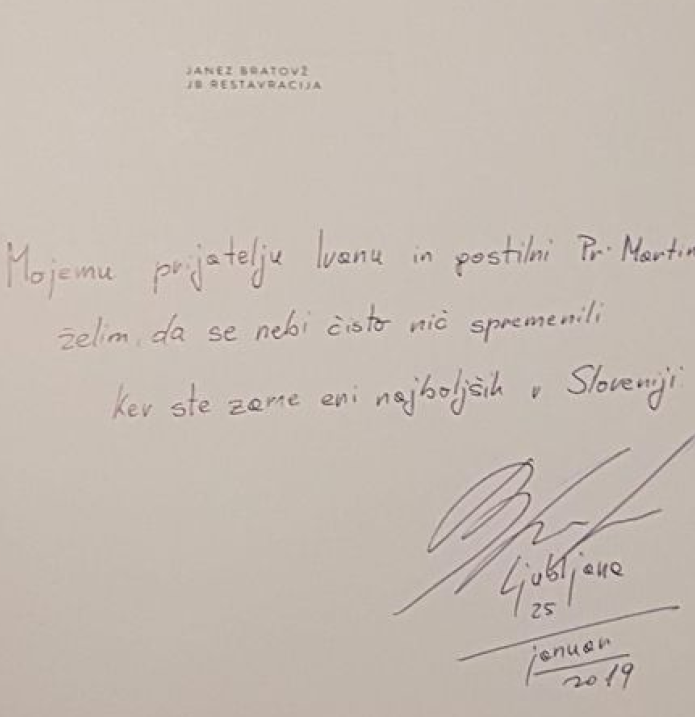 JANEZ BRATOVŽ
JB RESTAVRACIJA
Mojemu prijatelju Ivanu in postilni Pr. Martin
želim, da se nebi čisto nič spremenili
ker ste zame eni najboljših v Sloveniji.
Ljubljana
25
januar
2019